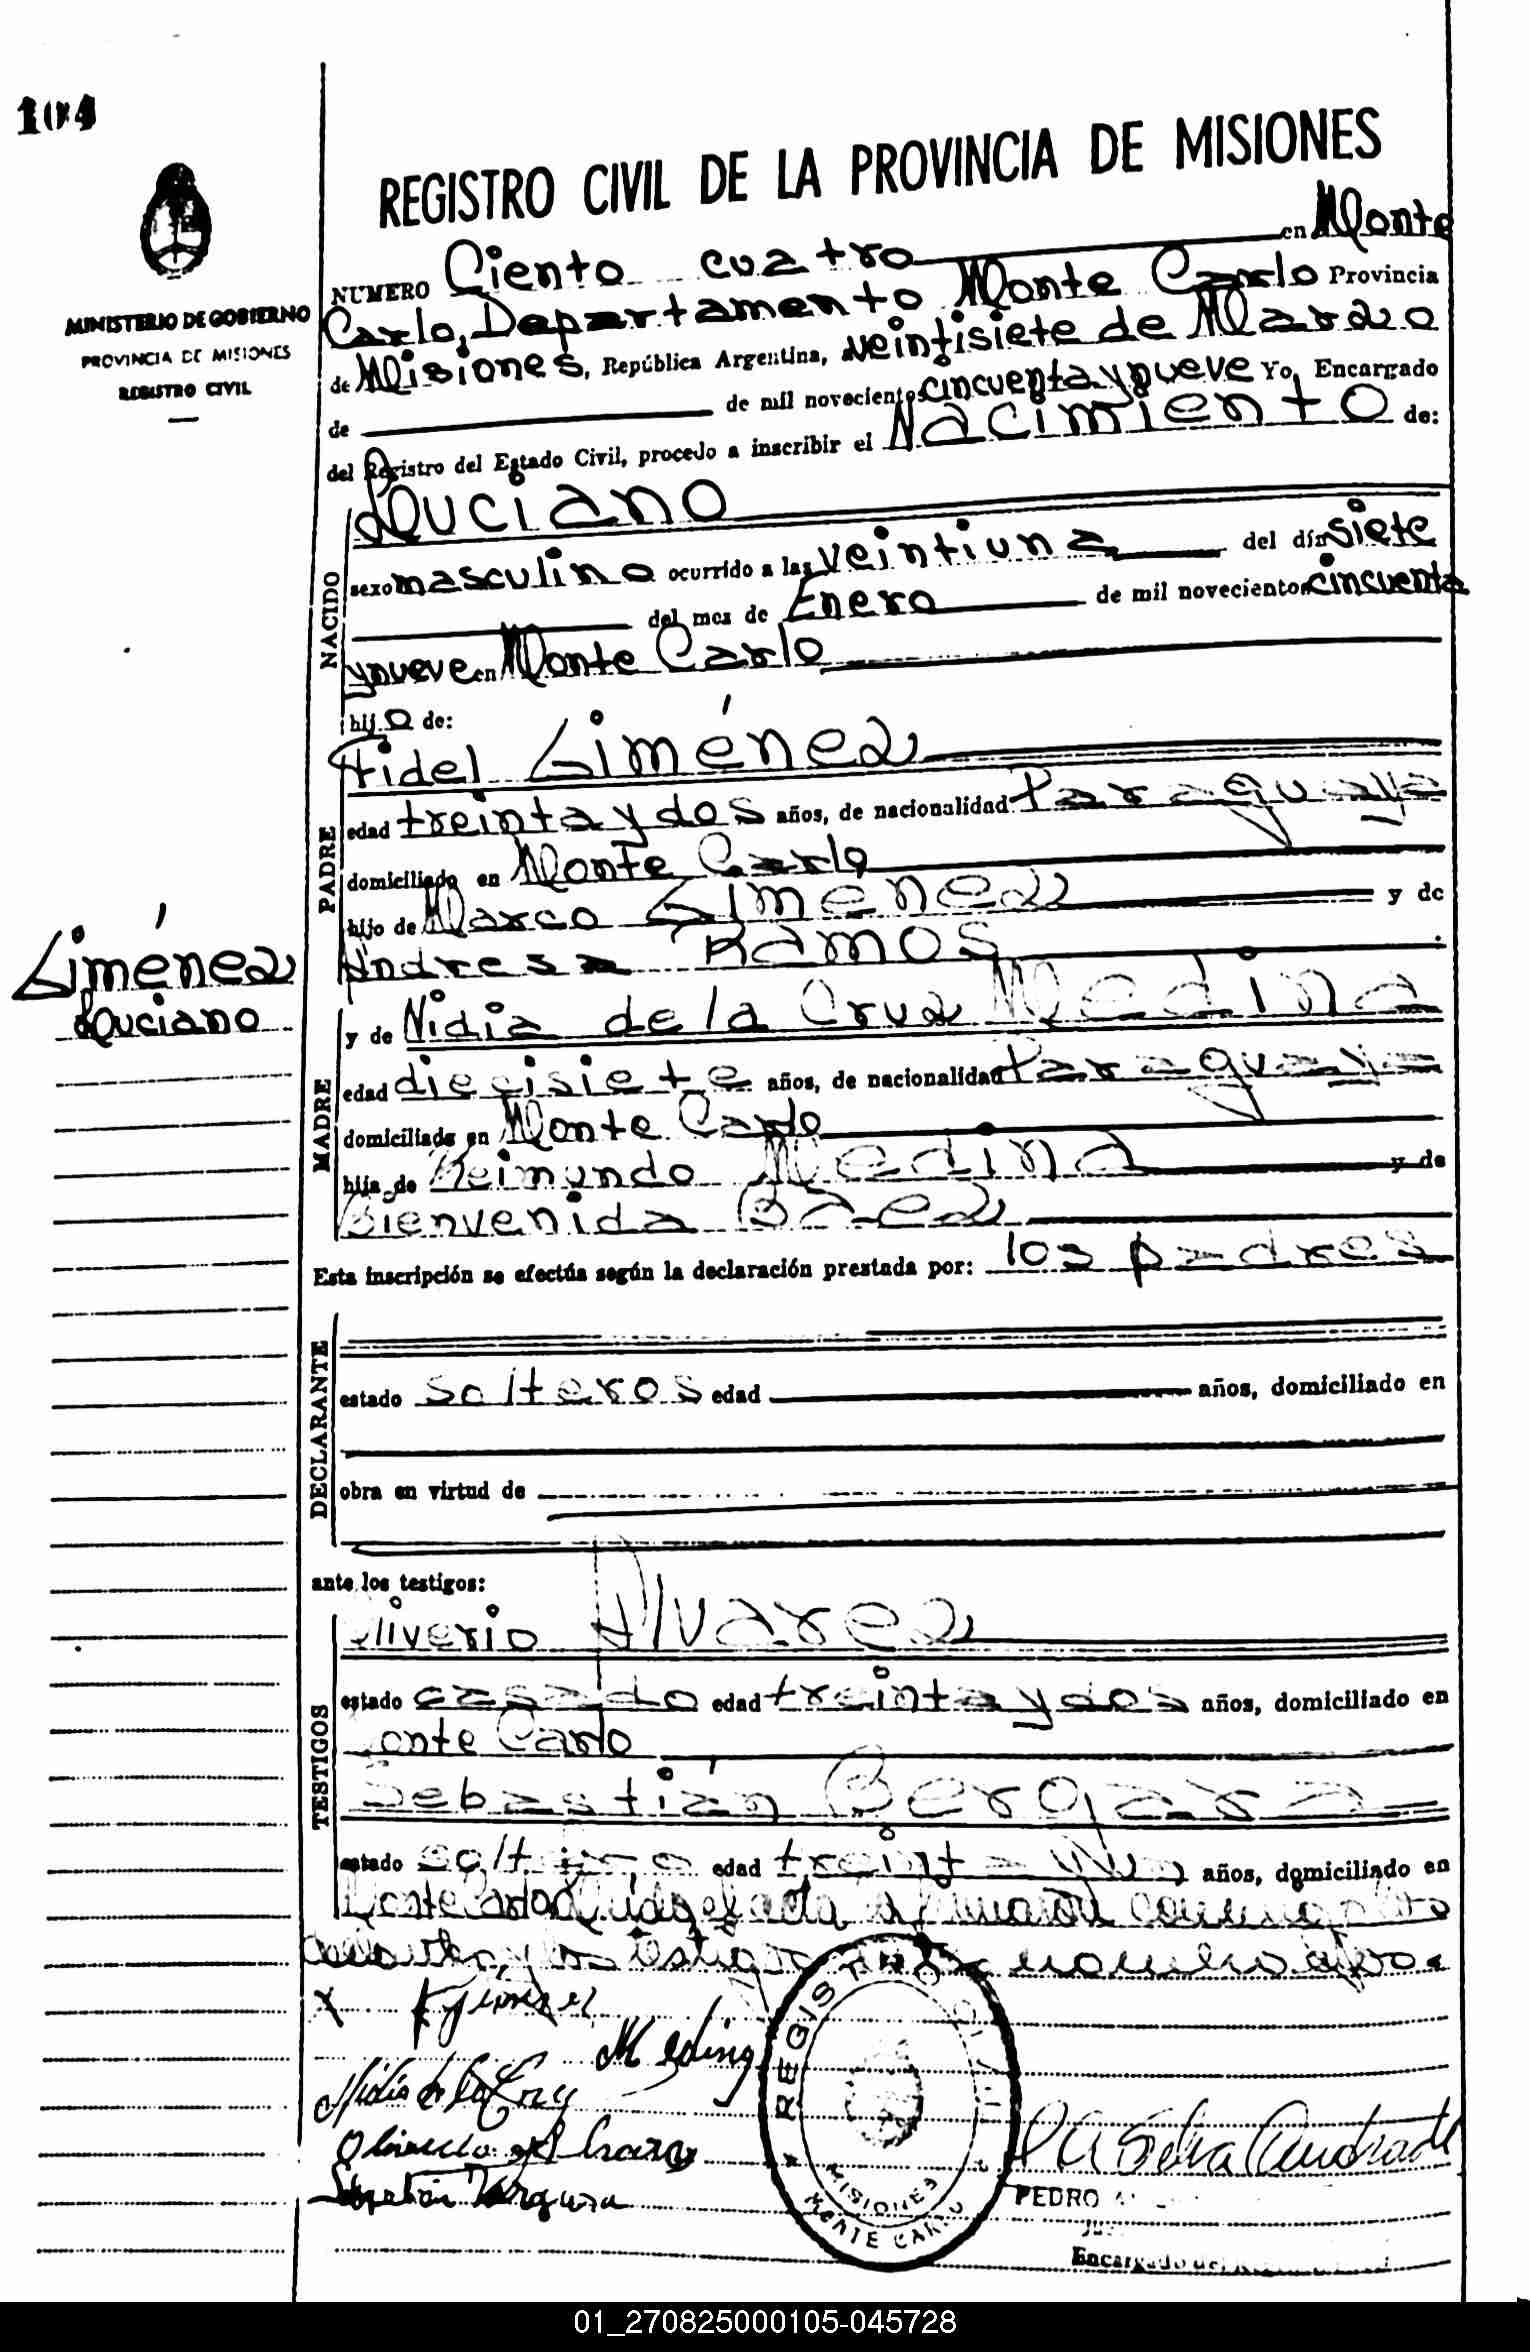 104
MINISTERIO DE GOBIERNO
PROVINCIA DE MISIONES
REGISTRO CIVIL
REGISTRO CIVIL DE LA PROVINCIA DE MISIONES
NUMERO Ciento cuatro en Monte
Carlo, Departamento Monte Carlo Provincia
de Misiones, República Argentina, veintisiete de Marzo
de de mil novecientos cincuenta y nueve Yo, Encargado
del Registro del Estado Civil, procedo a inscribir el Nacimiento de:
NACIDO
Luciano
sexo masculino ocurrido a las veintiuna del día siete
del mes de Enero de mil novecientos cincuenta
y nueve en Monte Carlo
hijo de:
PADRE
Fidel Giménez
edad treinta y dos años, de nacionalidad Paraguaya
domiciliado en Monte Carlo
hijo de Marco Giménez y de
Andresa Ramos
Giménez
Luciano
MADRE
y de Nidia de la Cruz Medina
edad diecisiete años, de nacionalidad Paraguaya
domiciliada en Monte Carlo
hija de Reimundo Medina y de
Bienvenida Báez
Esta inscripción se efectúa según la declaración prestada por: los padres
DECLARANTE
estado solteros edad años, domiciliado en
obra en virtud de
ante los testigos:
TESTIGOS
Oliverio Alvarez
estado casado edad treinta y dos años, domiciliado en
Monte Carlo
Sebastián Bergara
estado soltero edad treinta y un años, domiciliado en
Monte Carlo Leída el acta la firmaron conmigo los
los testigos
Medina
Nidia de la Cruz
Oliverio Alvarez
Sebastian Vergara
REGISTRO CIVIL
MISIONES
MONTE CARLO
PEDRO
Encargado del
01_270825000105-045728